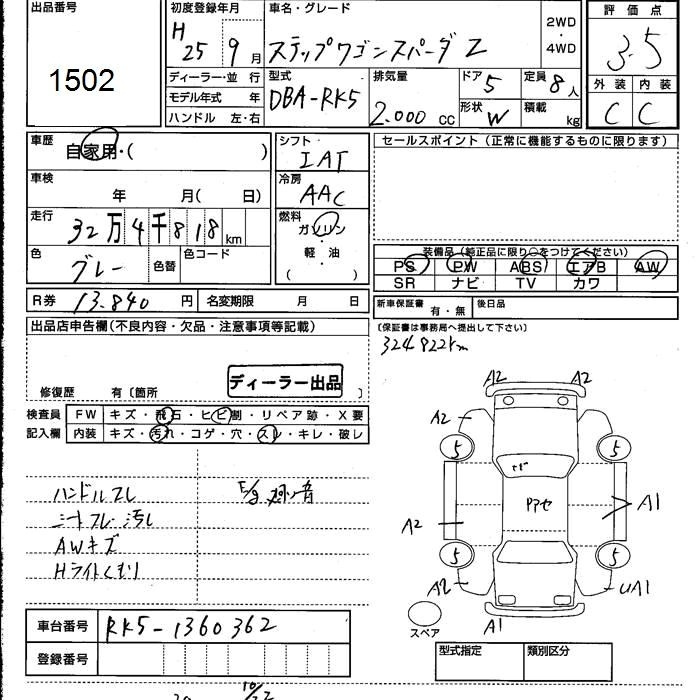 出品番号
1502
初度登録年月
H 25 9月
車名・グレード
ステップワゴンスパーダ Z
2WD
・
4WD
評価点
3.5
外装 内装
C C
ディーラー・並行
モデル年式 年
ハンドル 左・右
型式
DBA-RK5
排気量
2.000 cc
ドア
5
形状 W
定員
8人
積載
kg
車歴
自家用・( )
車検
年 月( 日)
走行
32万4千818km
色
グレー
色替
色コード
シフト
IAT
冷房
AAC
燃料
ガソリン
・
軽油
( )
セールスポイント(正常に機能するものに限ります)
装備品(純正品に限り○をつけてください)
PS PW ABS エアB AW
SR ナビ TV カワ
R券 13.840 円 名変期限 月 日
新車保証書 有・無 後日品
(保証書は事務局へ提出して下さい)
324822km
出品店申告欄(不良内容・欠品・注意事項等記載)
ディーラー出品
修復歴 有〔箇所 〕
検査員
記入欄
FW キズ・飛石・ヒビ割・リペア跡・X要
内装 キズ・汚れ・コゲ・穴・スレ・キレ・破レ
ハンドルスレ
シートスレ 汚レ
AWキズ
Hライトくもり
E/g
音
A2 A2
A2
5 5
A1
A2
5 5
A2
UA1
A1
スペア
車台番号 RK5-1360362
登録番号
型式指定 類別区分